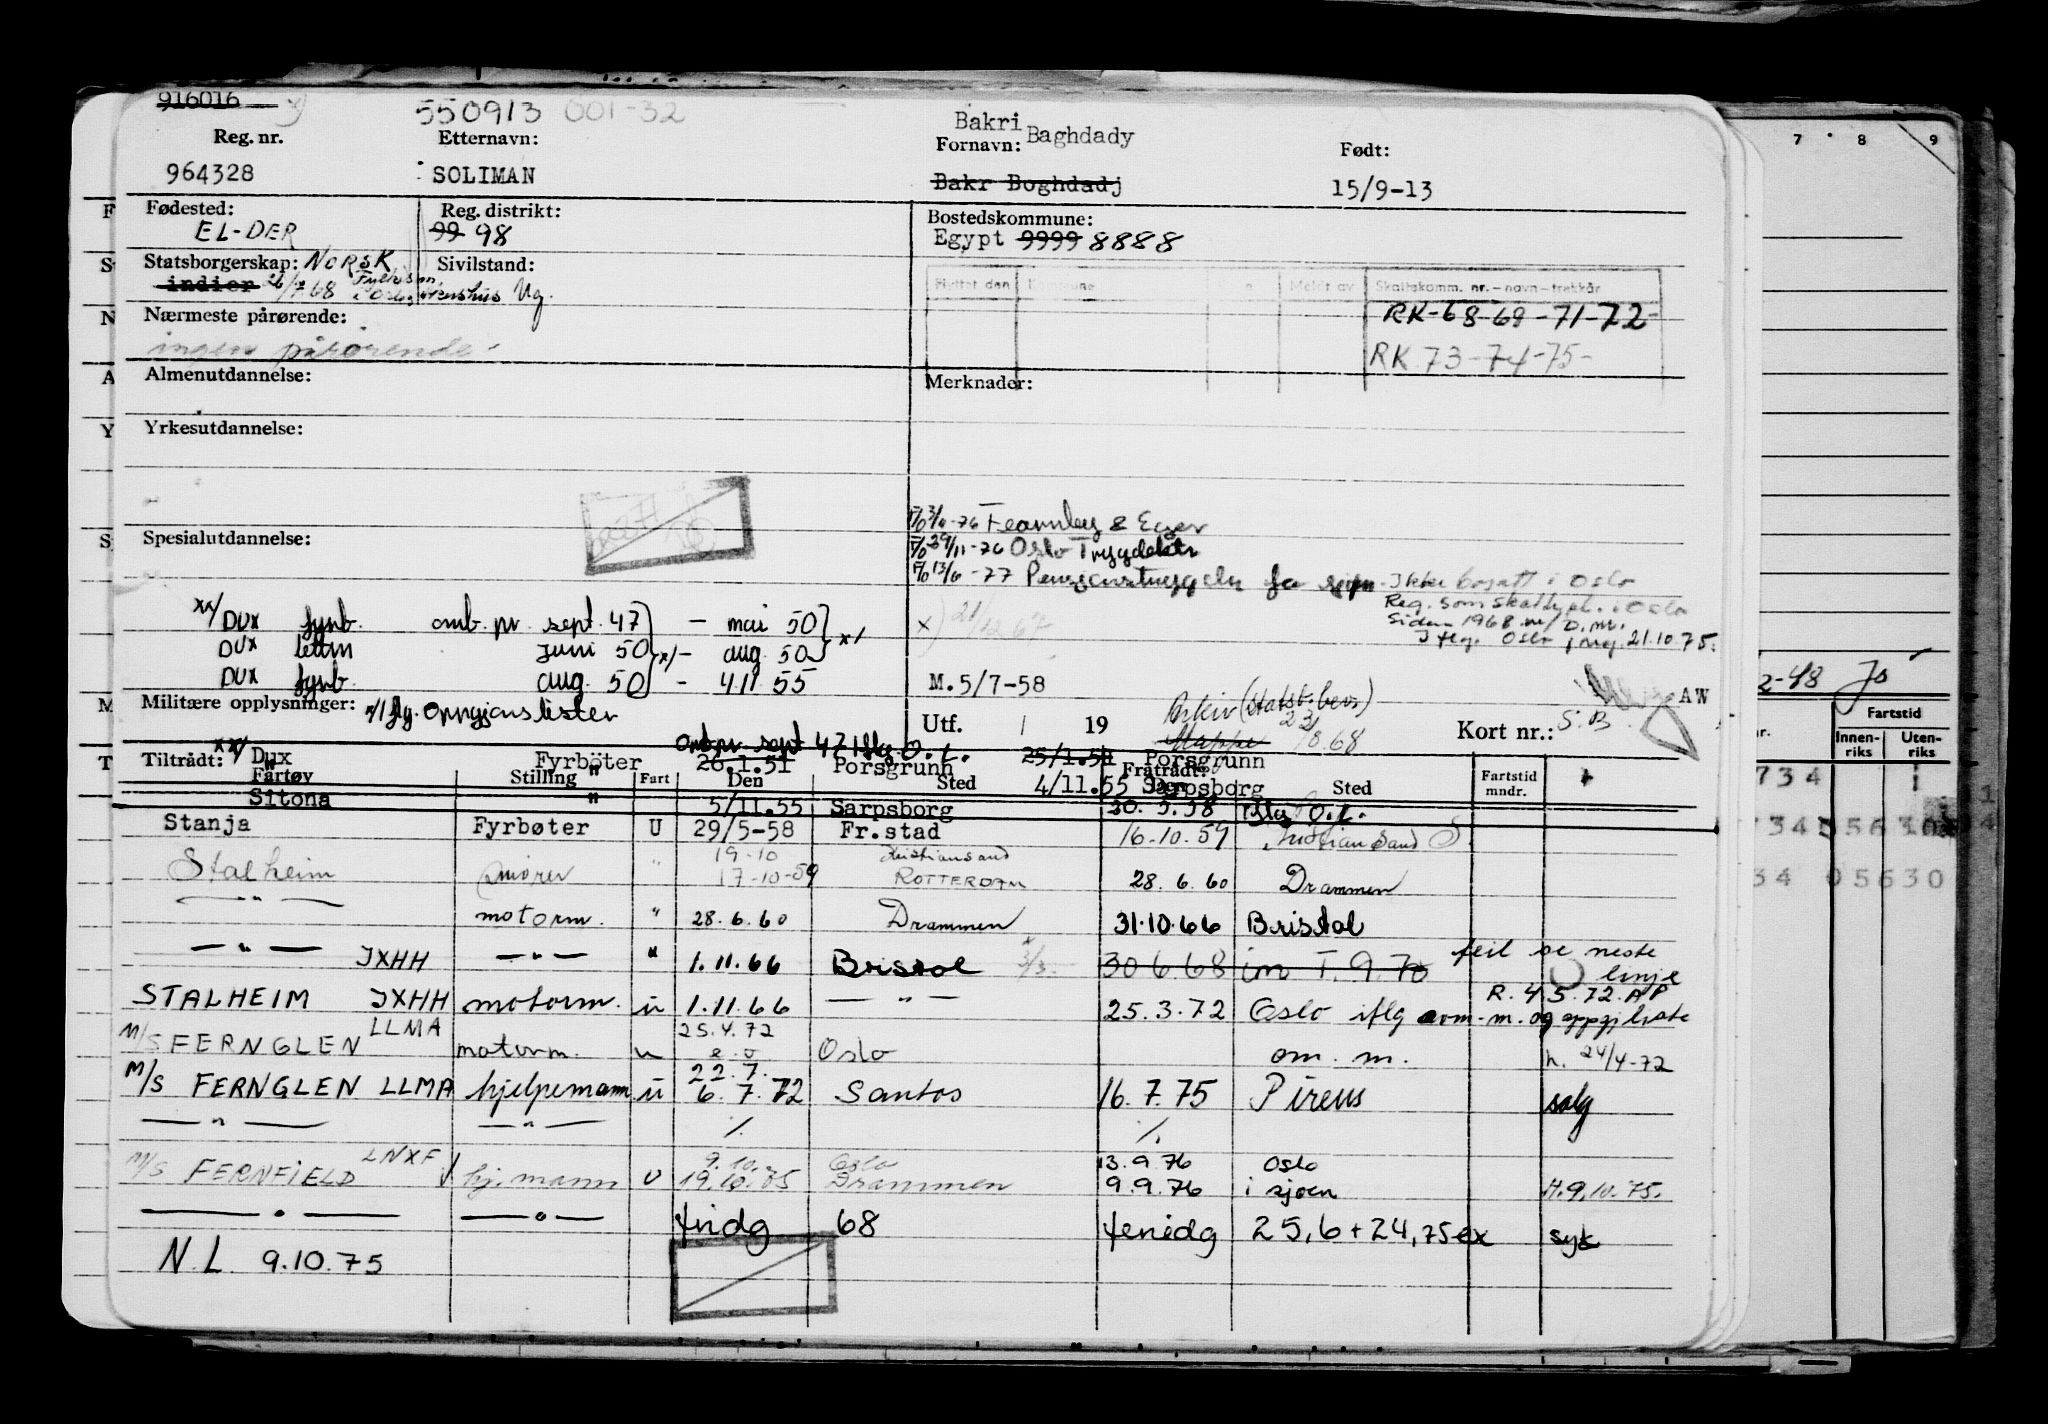 916016
550913 001-32
Reg. nr. Etternavn: Bakri Baghdady Fornavn: Født:
964328 SOLIMAN Bakr Boghdadj 15/9-13
Fødested: Reg. distrikt: Bostedskommune:
EL-DER 99 98 Egypt 9999 8888
Statsborgerskap: NORSK Sivilstand:
indier 26/7 68 Ug.
Flyttet den Kommune Meldt av Skattekomm. nr. – navn – trekkår
Nærmeste pårørende: RK-68-69-71-72-
ingen pårørende RK 73-74-75-
Almenutdannelse: Merknader:
Yrkesutdannelse:
Fearnley & Eger
Spesialutdannelse: 29/11-76 Oslo Trygdektr
13/6-77 Pensjonstrygden for sjøm. Ikke bosatt i Oslo
Reg. som skattepl. i Oslo
siden 1968 m/ D.nr.
I flg. Oslo 21.10.75.
xx/ DUX fyrb. omb. pr. sept. 47 - mai 50 x/
x) 21/12 67
DUX lettm juni 50 x/- aug. 50
DUX fyrb. aug. 50 - 4.11.55
M.5/7-58
Militære opplysninger: x/ flg. Oppgjørslister
Utf. / 19 Arkiv (statsb. bevs) 23/8.68 Mappe Kort nr.: S.B. AW
xx/ omb. pr. sept 47 iflg. O.L.
Tiltrådt: Dux Fyrböter 26.1.51 Porsgrunn 25/1.51 Porsgrunn
Fartøy Stilling Fart Den Sted Fratrådt: Den Sted Fartstid mndr.
" " 4/11.55 Sarpsborg
Sitona " 5/11.55 Sarpsborg 20.5.58 iflg O.L.
Stanja Fyrbøter U 29/5-58 Fr.stad 16.10.59 Kristiansand S
Stalheim smører " 19-10 17-10-59 Kristiansand ROTTERDAM 28.6.60 Drammen
— " — motorm. " 28.6.60 Drammen 31.10.66 Bristol
— " — JXHH — " — " 1.11.66 Bristol 3/3. 30 6 68 im T. 9.70 feil se neste linje
R. 4.5.72. AP
STALHEIM JXHH motorm. u 1.11.66 — " — 25.3.72 Oslo iflg om.-m. og oppgj liste
M/S FERNGLEN LLMA motorm. u 25.4.72 e.o Oslo om. m. h. 24/4-72
M/S FERNGLEN LLMA hjelpemann u 22.7. 6.7.72 Santos 16.7.75 Pireus salg
— " — — " — ./. ./.
M/S FERNFIELD LNXF hj. mann U 9.10. 19.10.75 Oslo Drammen 13.9.76 9.9.76 Oslo i sjøen H.9.10.75.
— " — — " — tridg 68 feriedg 25,6 + 24,75 ex syk
N.L. 9.10.75
7 8 9
2-48 Jo
Fartstid
Innen-riks Uten-riks
734
734 05630
34 05630